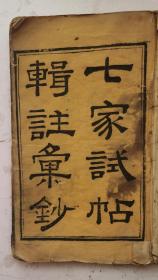 七家試帖
輯註彙鈔